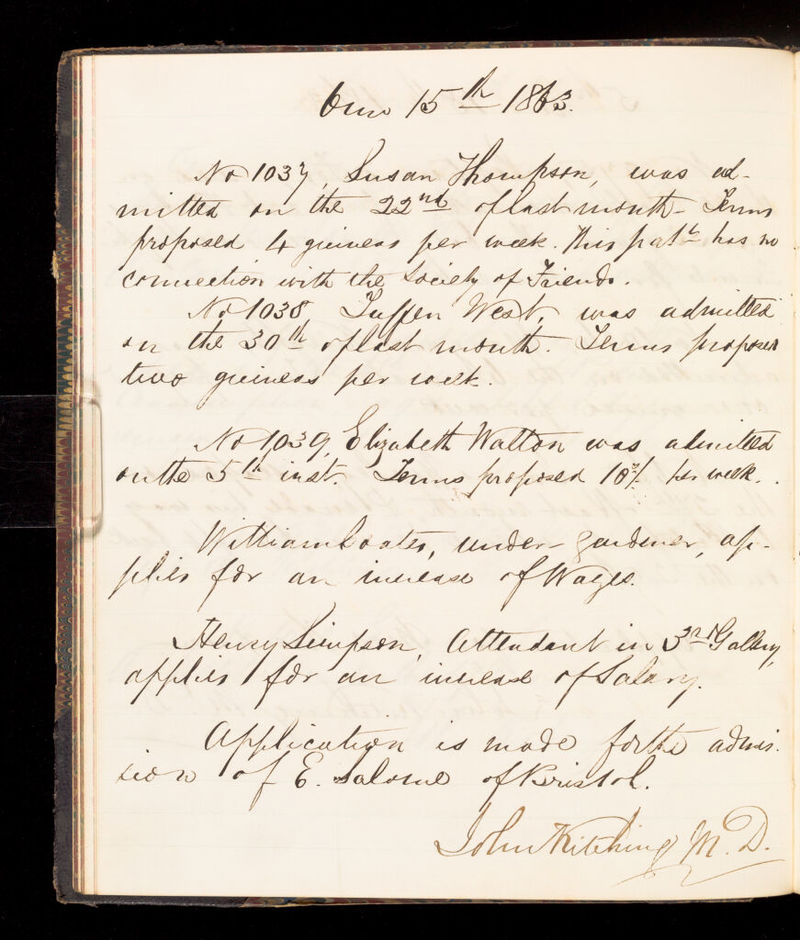 6 mo 15th 1863.
No 1037, Susan Thompson, was ad-
mitted on the 22nd of last month - Terms
proposed 4 guineas per week. This patt has no
connection with the Society of Friends.
No 1038, Tuffen West, was admitted
on the 30th of last month. Terms proposed
two guineas per week.
No 1039, Elizabeth Walton was admitted
on the 5th inst. Terms proposed 10/ per week.
William Coates, under-gardener, ap-
plies for an increase of Wages.
Henry Simpson, Attendant in 3rd Gallery,
applies for an increase of Salary.
Application is made for the admis-
sion of E. Salome of Bristol.
John Kitching M.D.